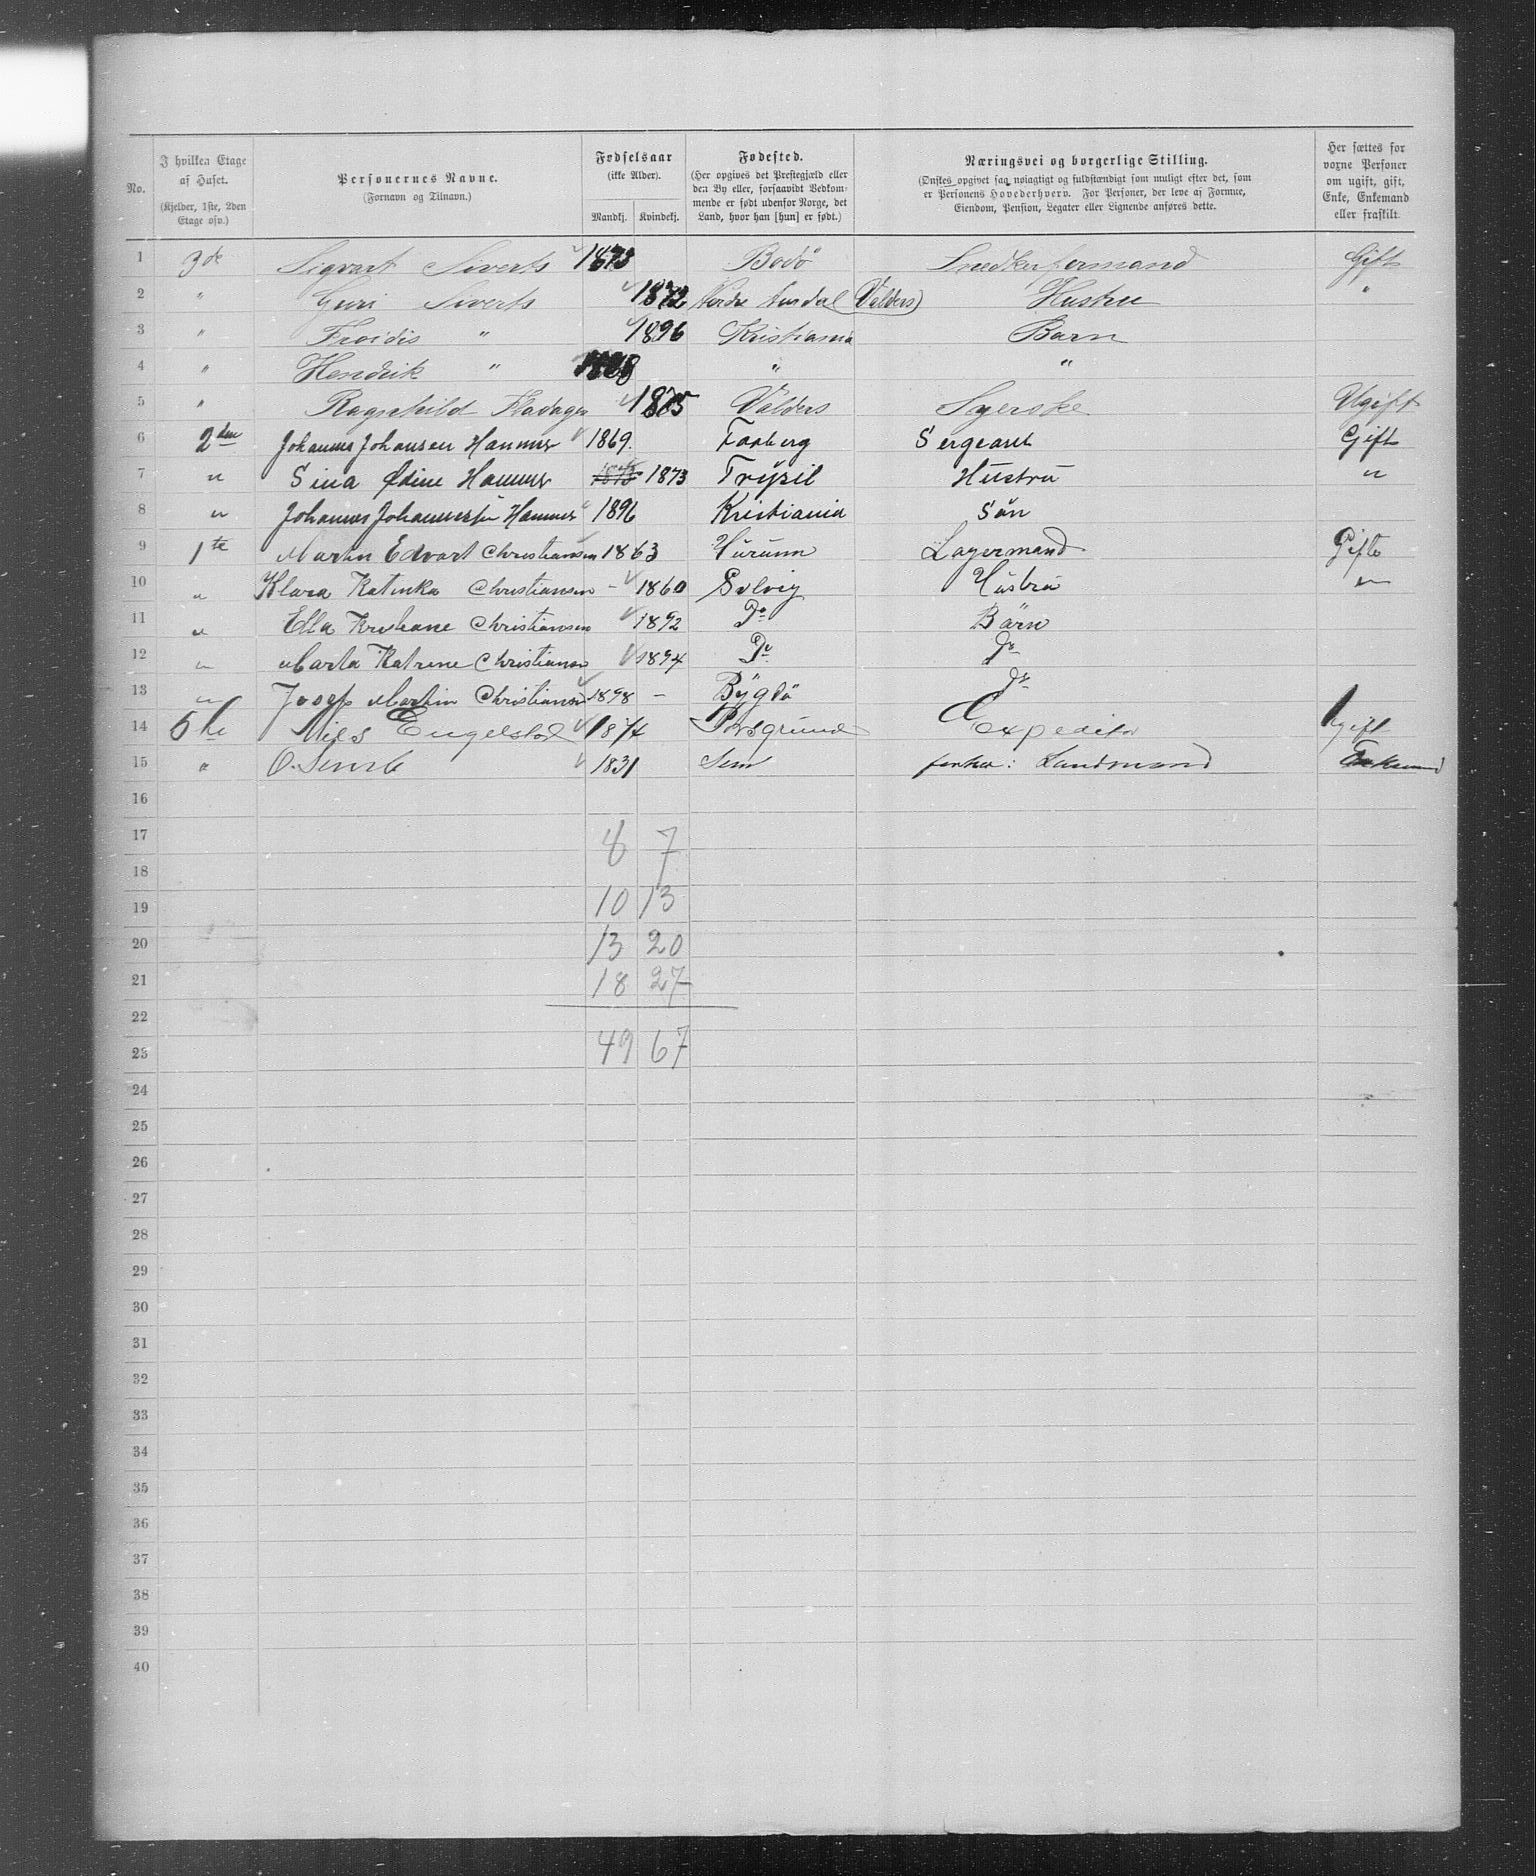 No.
I hvilken Etage af Huset.
(Kjelder, 1ste, 2den Etage osv.)
Personernes Navne.
(Fornavn og Tilnavn.)
Fødselsaar
(ikke Alder).
Mandkj. Kvindekj.
Fødested.
(Her opgives det Prestegjæld eller
den By eller, forsaavidt Vedkom-
mende er født udenfor Norge, det
Land, hvor han [hun] er født.)
Næringsvei og borgerlige Stilling.
(Ønskes opgivet saa nøiagtigt og fuldstændigt som muligt efter det, som
er Personens Hovederhverv. For Personer, der leve af Formue,
Eiendom, Pension, Legater eller Lignende anføres dette.
Her sættes for
voxne Personer
om ugift, gift,
Enke, Enkemand
eller fraskilt.
1 3de Sigvart Siverts 1873 Bodö Snedkerformand Gift
2 " Guri Siverts 1872 Nordre Aurdal (Valders) Hustru "
3 " Froidis " 1896 Kristiania Barn
4 " Hendrik " "  "
5 " Ragnhild 1875 Valders Syerske Ugift
6 2den Johannes Johansen Hammer 1869. Faaberg Sergeant Gift
7 " Sina Ødine Hammer 1873 1873 Trysil Hustru "
8 " Johannes Hammer 1896 Kristiania Sön
9 1te Martin Edvart Christiansen 1863 Hurum Lagermand Gifte
10 " Klara Katinka Christiansen - 1860 Solvig Hustru "
11 " Ella Kristiane Christiansen 1892 Do Barn
12 " Marta Katrine Christiansen 1894 Do Do
13 " Josef Martin Christiansen 1898 - Bygdö Do
14 5te Nils Engelstad 1874 Porsgrund Expeditör Ugift
15 " O. Semb 1831 Sem forhv: Landmand Enkemand
16
17 8 7
18
19 10 13
20 13 20
21 18 27
22
23 49 67
24
25
26
27
28
29
30
31
32
33
34
35
36
37
38
39
40